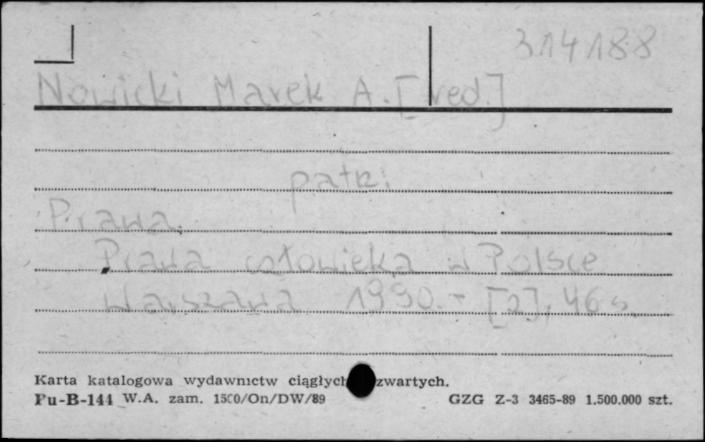 314188
Nowicki Marek A. [red.]
patrz:
Prawa.
Prawa człowieka w Polsce
Warszawa 1990.- [2], 46 s.
Karta katalogowa wydawnictw ciągłych zwartych.
Pu-B-144 W.A. zam. 1500/On/DW/89 GZG Z-3 3465-89 1.500.000 szt.